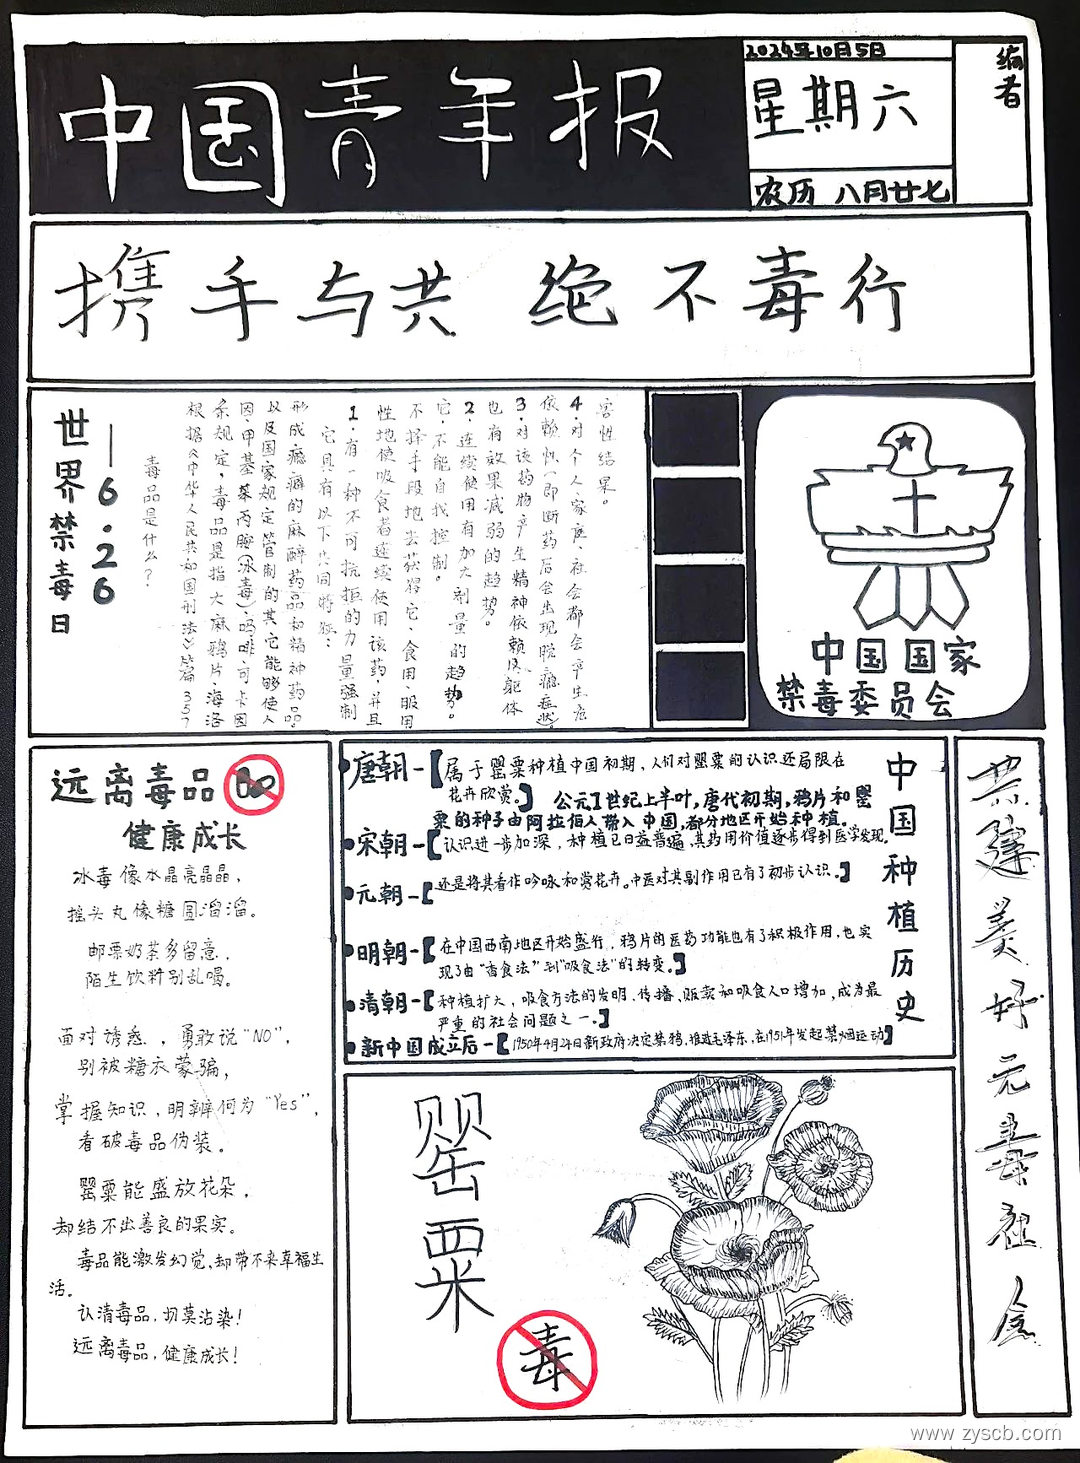 中国青年报
2024年10月5日
星期六
农历 八月廿七
编者
携手与共 绝不毒行
世界禁毒日
—6.26
毒品是什么?
根据《中华人民共和国刑法》第357
条规定,毒品是指大麻鸦片,海洛
因,甲基苯丙胺(冰毒),吗啡,可卡因
以及国家规定管制的其它能够使人
形成瘾癖的麻醉药品和精神药品。
它具有以下共同特征:
1.有一种不可抗拒的力量强制
性地使吸食者连续使用该药,并且
不择手段地去获得它,食用、服用
它,不能自我控制。
2.连续使用有加大剂量的趋势。
也有效果减弱的趋势。
3.对该药物产生精神依赖及躯体
依赖性(即断药后会出现脱瘾症状)
4.对个人、家庭、社会都会产生危
害性结果。
中国国家
禁毒委员会
远离毒品
健康成长
冰毒像水晶亮晶晶,
摇头丸像糖圆溜溜。
邮票奶茶多留意,
陌生饮料别乱喝。
面对诱惑,勇敢说“NO”,
别被糖衣蒙骗,
掌握知识,明辨何为“Yes”,
看破毒品伪装。
罂粟能盛放花朵,
却结不出善良的果实。
毒品能激发幻觉,却带不来幸福生
活。
认清毒品,切莫沾染!
远离毒品,健康成长!
中国种植历史
唐朝-【属于罂粟种植中国初期,人们对罂粟的认识还局限在
花卉欣赏。】 公元7世纪上半叶,唐代初期,鸦片和罂
粟的种子由阿拉伯人带入中国,部分地区开始种植。
宋朝-【认识进一步加深,种植已日益普遍,其药用价值逐步得到医学发现。
元朝-【还是将其看作吟咏和赏花卉。中医对其副作用已有了初步认识。】
明朝-【在中国西南地区开始盛行,鸦片的医药功能也有了积极作用,也实
现了由“吞食法”到“吸食法”的转变。】
清朝-【种植扩大,吸食方法的发明,传播,贩卖和吸食人口增加,成为最
严重的社会问题之一.】
新中国成立后-【1950年4月24日新政府决定禁鸦,推进毛泽东,在1951年发起禁烟运动】
共建美好无毒社会
罂粟
毒
www.zyscb.com